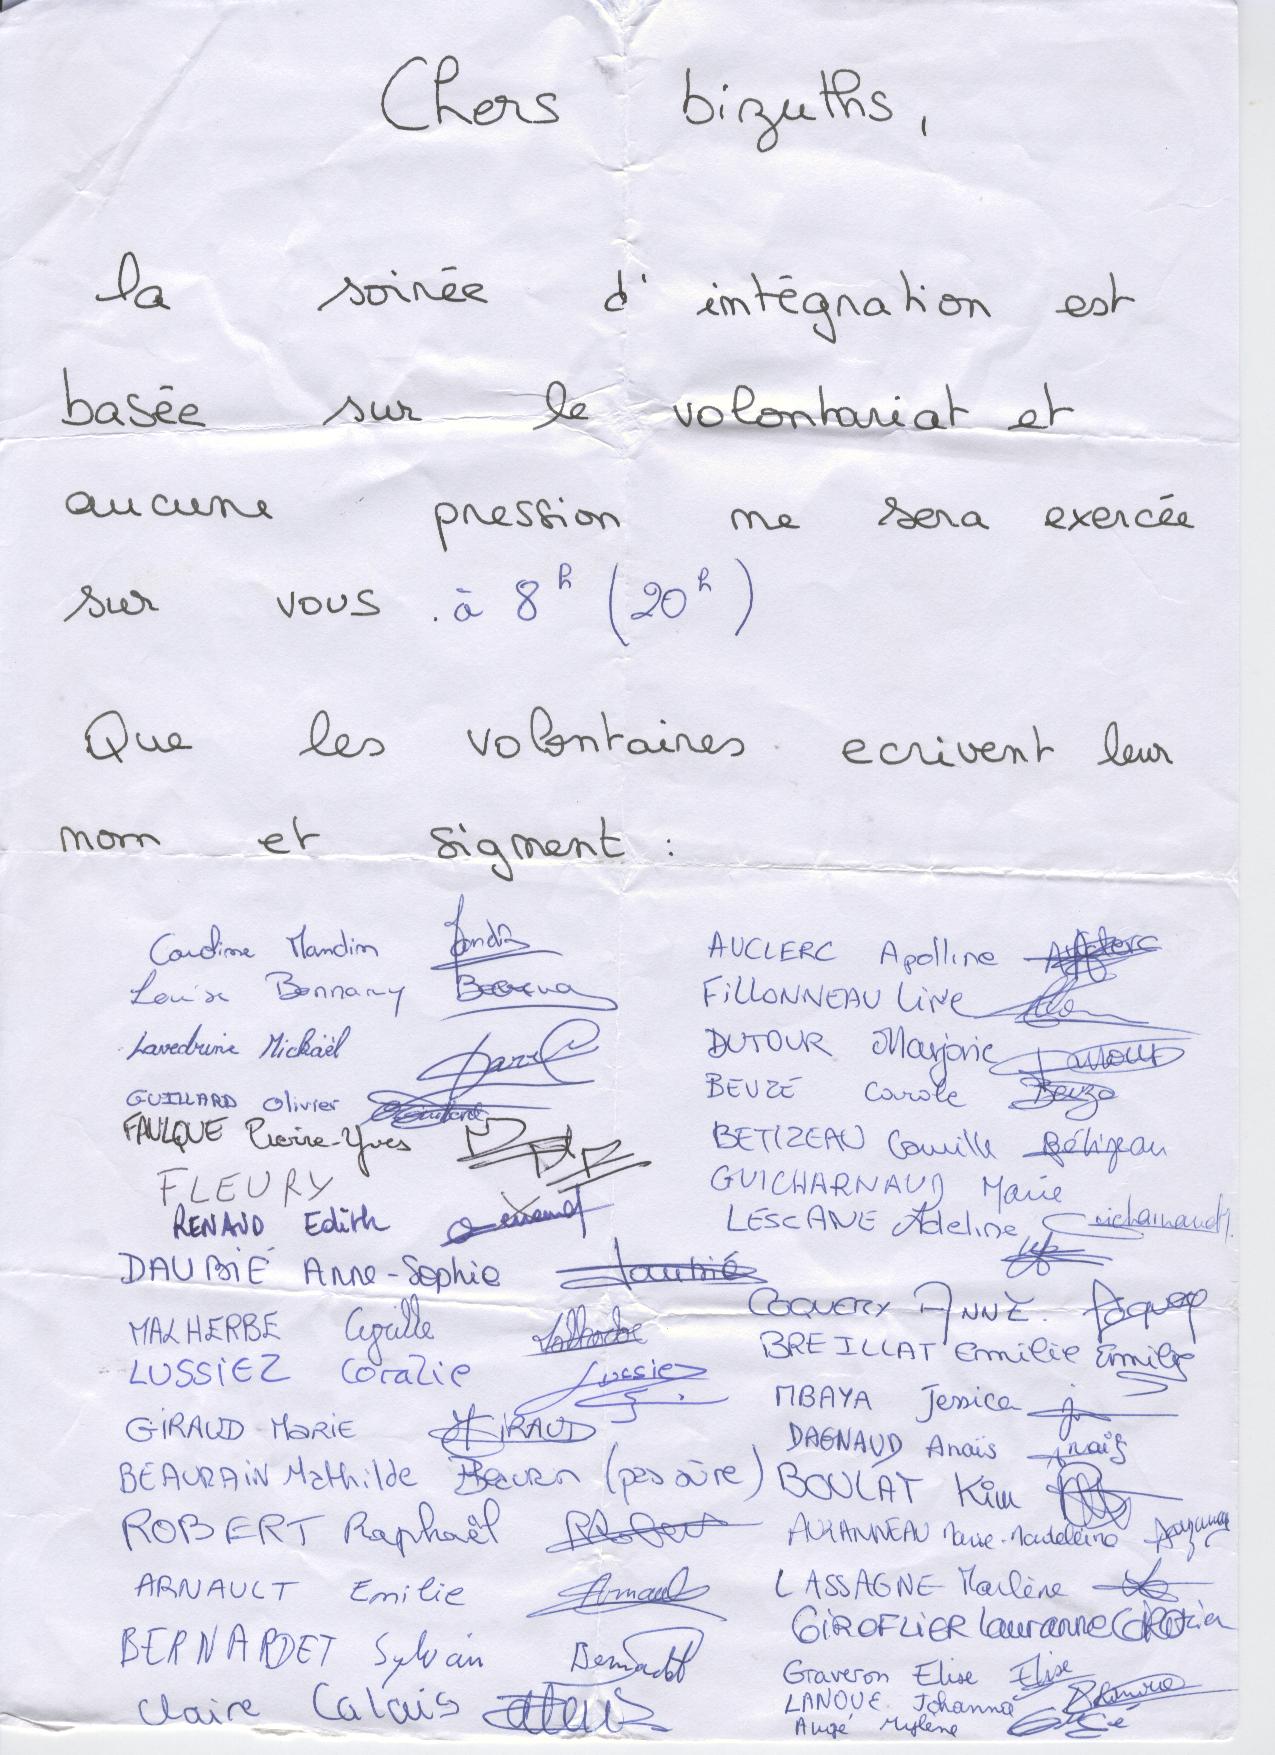 Chers bizuths,
la soirée d'intégration est
basée sur le volontariat et
aucune pression ne sera exercée
sur vous. à 8h (20h)
Que les volontaires ecrivent leur
nom et signent :
Caroline Mandin
Louise Bonnamy
Lavedrine Mickaël
GUILLARD Olivier
FAULQUE Pierre-Yves
FLEURY
RENAUD Edith
DAUBIÉ Anne-Sophie Daubié
MALHERBE Cyrille Malherbe
LUSSIEZ Coralie Lussiez
GIRAUD MARIE GIRAUD
BEAURAIN Mathilde (pas sûre)
ROBERT Raphaël Robert
ARNAULT Emilie Arnault
BERNARDET Sylvain
Claire Calais
AUCLERC Apolline Auclerc
FILLONNEAU LINE
DUTOUR Marjorie Dutour
BEUZE Carole Beuze
BETIZEAU Camille Bétizeau
GUICHARNAUD Marie
LESCANE Adeline Guicharnaud
COQUERY ANNE. Coquery
BREILLAT Emilie Emilie
MBAYA Jessica J
DAGNAUD Anaïs Anaïs
BOULAT Kim
AUZANNEAU Marie-Madeleine
LASSAGNE Marlène
GIROFLIER Lauranne Giroflier
Graveron Elise Elise
LANOUE Johanna
Augé Mylène Augé